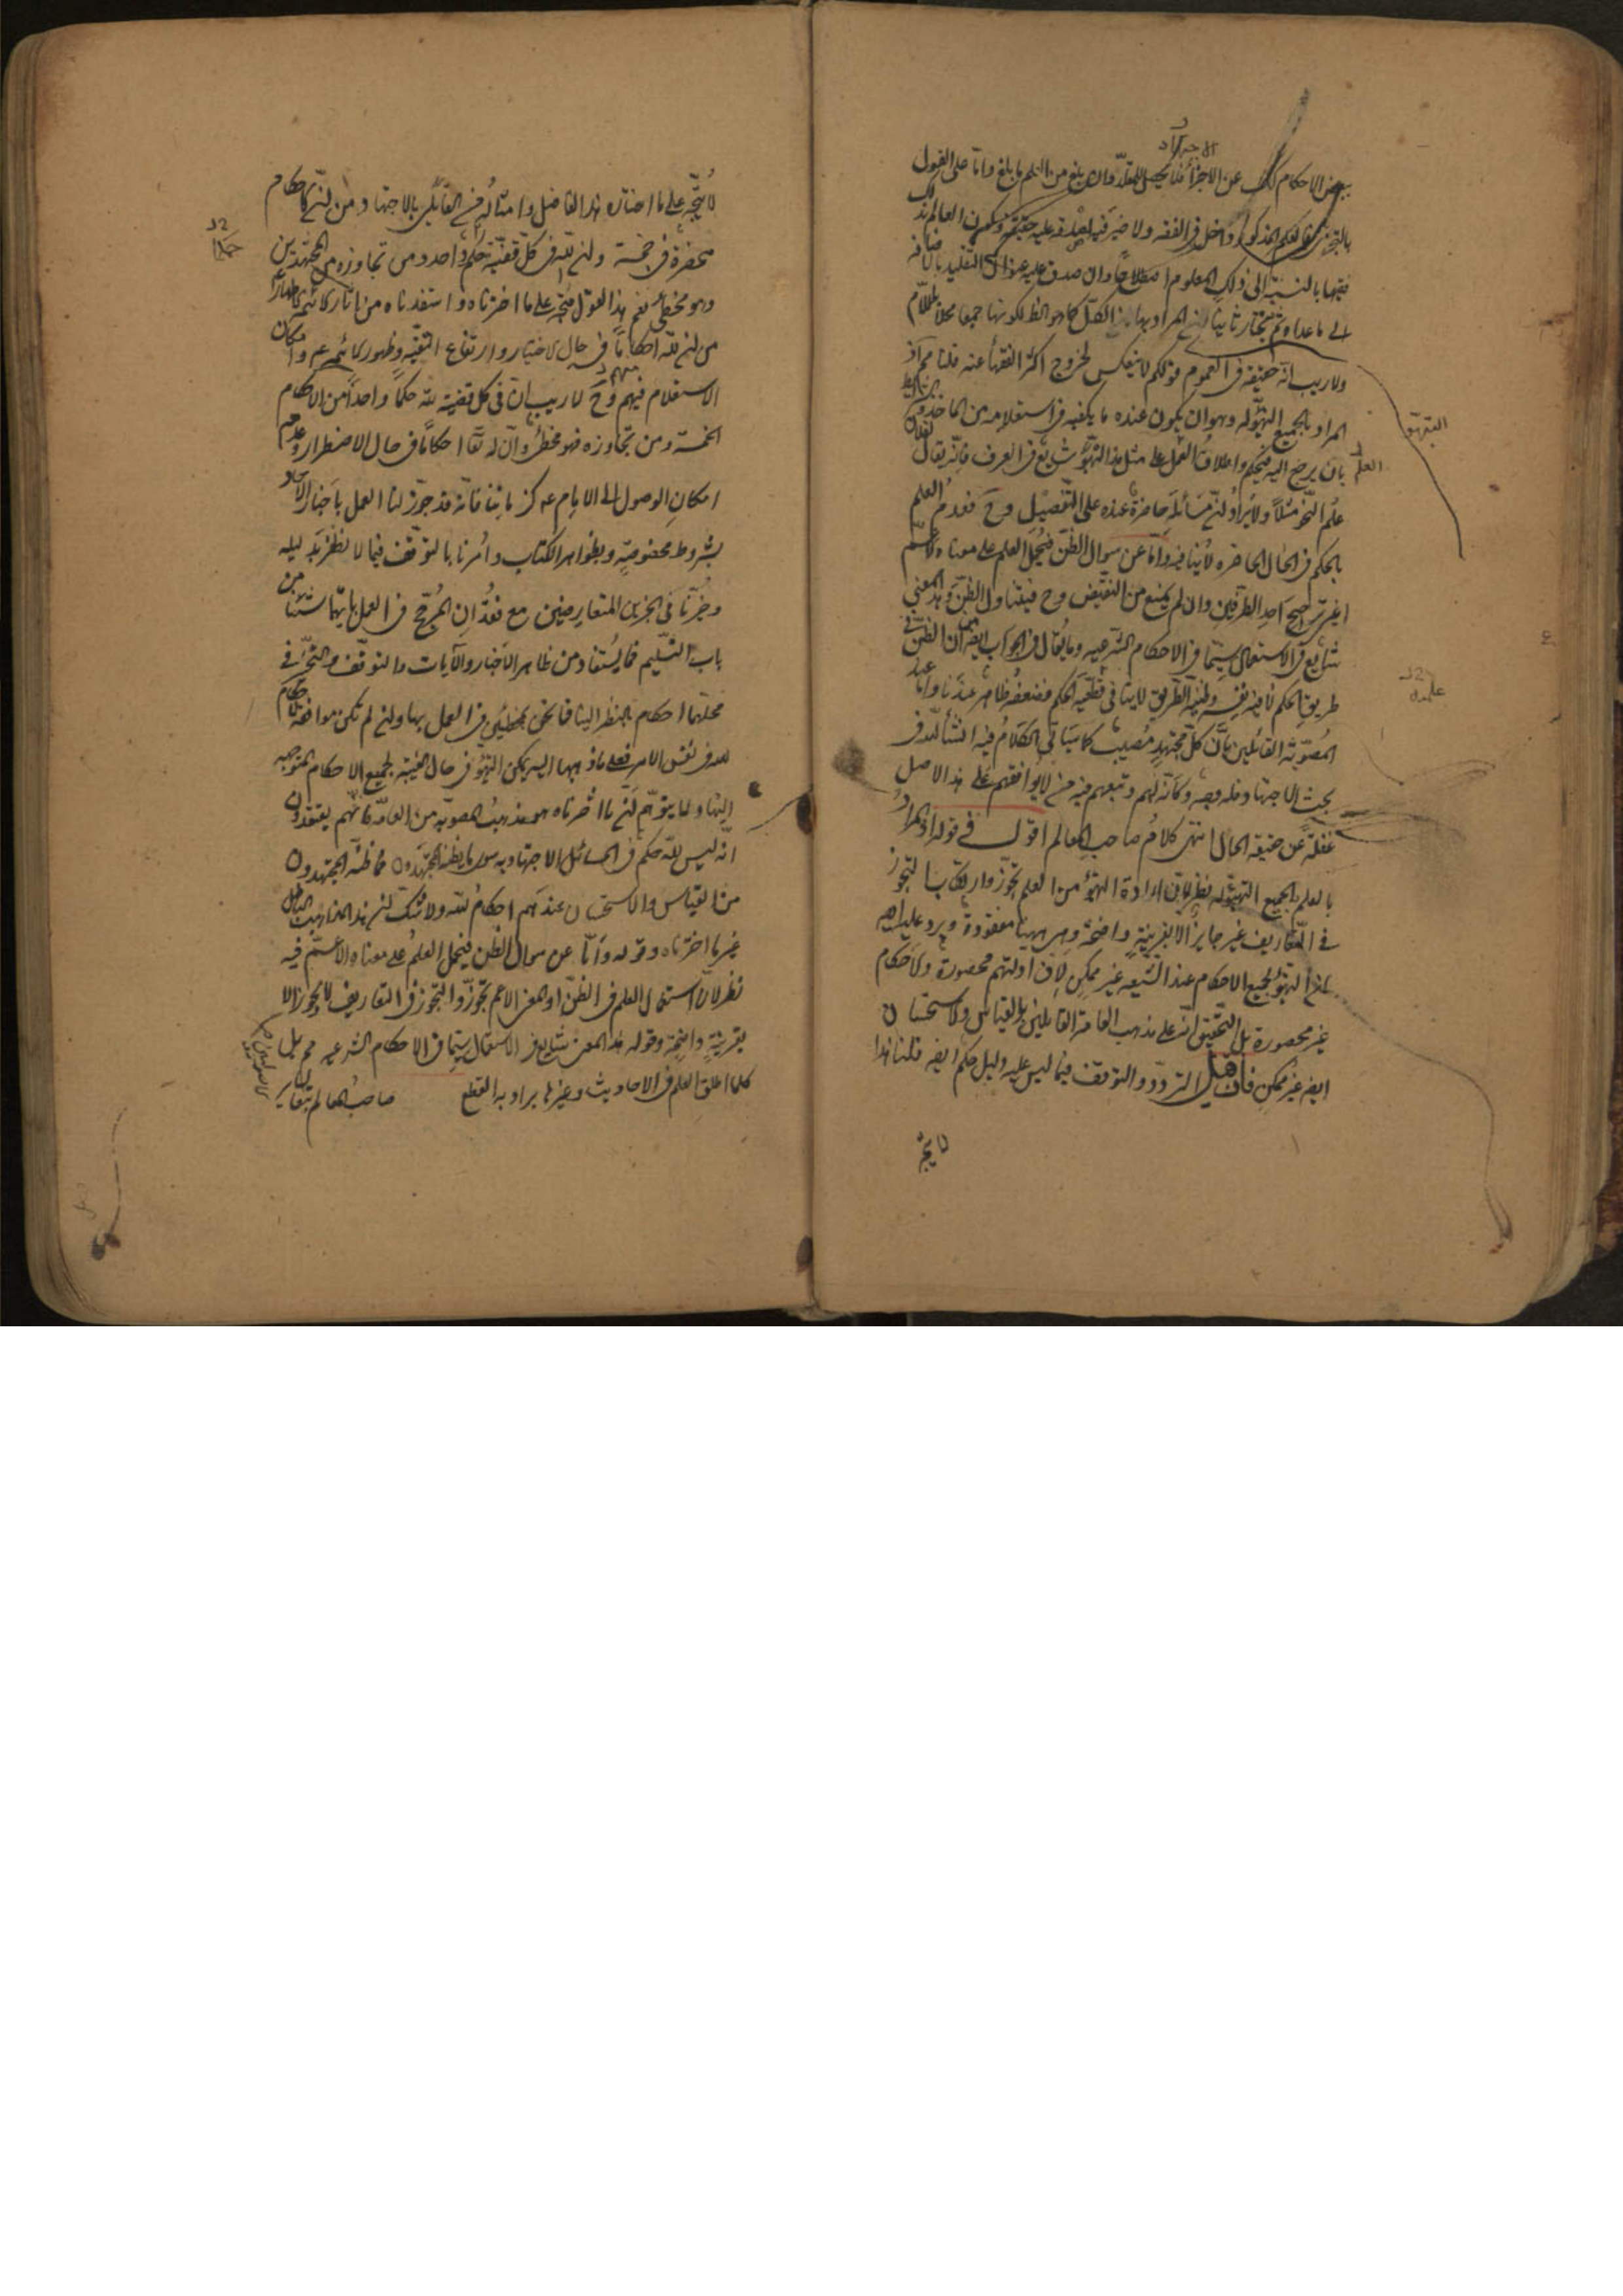 ببعض الاحكام كذلك عن الاجزاء فلا يحصل للمقلد وان بلغ من العلم ما بلغ واما على القول
بالتجزي فالعلم المذكور داخل في الفقه ولا ضير فيه لصدقه عليه حقيقة وكون العالم بذلك
فقيها بالنسبة الى ذلك المعلوم اصطلاحا وان صدق عليه عنوان التقليد بالاضافة
الى ما عداه ثم نختار ثانيا ان المراد بها الكل كما هو الظ لكونها جمعا محلا باللام
ولا ريب انه حقيقة في العموم قولكم لا ينعكس لخروج اكثر الفقهاء عنه قلنا مم اذ
المراد بالجميع التهيؤ له وهو ان يكون عنده ما يكفيه في استعلامه من الماخذ
بان يرجع اليه فيحكم واطلاق العلم على مثل هذا التهيؤ شايع في العرف فانه يقال
علم النحو مثلا ولا يراد ان مسائله حاضرة عنده على التفصيل وح فعدم العلم
بالحكم في الحال الحاضرة لا ينافيه واما عن سوال الظن فيحمل العلم على معناه الاعم
اعني ترجيح احد الطرفين وان لم يمنع من النقيض وح فيتناول الظن وهذا المعنى
شايع في الاستعمال سيما في الاحكام الشرعيه وما يقال في الجواب ايضا ان الظن في
طريق الحكم لا فيه نفسه وظنية الطريق لا ينافي قطعية الحكم فضعفه ظاهر عندنا واما عند
المصوبة القائلين بان كل مجتهد مصيب كما سياتي الكلام فيه انشا الله في
بحث الاجتهاد فله وجه وكانه لهم وتبعهم فيه من لا يوافقهم على هذا الاصل
غفلة عن حقيقة الحال انتهى كلام صاحب المعالم اقول في قوله اذ المراد
بالعلم بالجميع التهيؤ له نظر لان ارادة التهيؤ من العلم تجوز وارتكاب التجوز
في التعاريف غير جايز الا بقرينة واضحة وهي ههنا مفقودة ويرد عليه
ان التهيؤ لجميع الاحكام عند الشيعه غير ممكن لان ادلتهم محصورة والاحكام
غير محصورة بل التحقيق انه على مذهب العامة القايلين بالقياس والاستحسان
ايضا غير ممكن فان قيل التردد والتوقف فيما ليس عليه دليل حكم ايضا قلنا هذا
لا يتجه
الاجتهاد
التهيؤ
العلم
لا يتجه على ما اختاره هذا الفاضل وامثاله من القائلين بالاجتهاد من ان الاحكام
منحصرة في خمسة وان لله في كل قضية حكم واحد ومن تجاوزه من المجتهدين
وهو مخطئ نعم هذا القول متجه على ما اخترناه واستفدناه من اثار الائمة الاطهار
من ان لله احكاما في حال الاختيار وارتفاع التقيه وظهور الائمة ع وامكان
الاستعلام منهم وح لا ريب ان في كل قضية لله حكما واحدا من الاحكام
الخمسة ومن تجاوزه فهو مخطئ وان له تعا احكاما في حال الاضطرار وعدم
امكان الوصول الى الامام عه كزماننا فانه قد جوز لنا العمل باخبار الاحاد
بشروط مخصوصة وبظواهر الكتاب وامرنا بالتوقف فيما لا نظفر بدليله
وخيرنا في الخبرين المتعارضين مع فقدان المرجح في العمل بايهما شئنا من
باب التسليم فما يستفاد من ظاهر الاخبار والايات والتوقف والتخير في
محلهما احكام بالنظر الينا فلا نكن بمخطئين في العمل بها وان لم تكن موافقة لاحكام
الله في نفس الامر فعلى ما ذهبنا اليه يمكن التهيؤ في حال الغيبة لجميع الاحكام المتوجه
الينا ولا يتوهم ان ما اخترناه هو مذهب المصوبة من العامة فانهم يعتقدون
انه ليس لله حكم في المسائل الاجتهاديه سوى ما يظنه المجتهدون فما ظنه المجتهدون
من القياس والاستحسان عندهم احكام الله ولا شك ان هذا المذهب الباطل
غير ما اخترناه وقوله واما عن سوال الظن فيحمل العلم على معناه الاعم فيه
نظر لان استعمال العلم في الظن او المعنى الاعم تجوز والتجوز في التعاريف لا يجوز الا
بقرينة واضحة وقوله هذا المعنى شايع في الاستعمال سيما في الاحكام الشرعيه مم بل
كلما اطلق العلم في الاحاديث وغيرها يراد به القطع